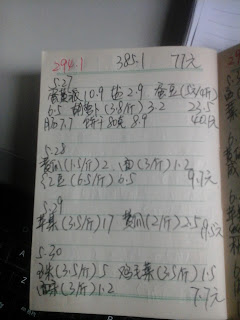 294.1 385.1 77元
5.27
10.9 盐 2.9 蚕豆(5元/斤)
6.5 胡萝卜(3.8/斤)3.2 23.5
7.7 饼干80克 8.9 40.1元
5.28
黄瓜(1.5/斤)2 面(3/斤)1.2
红豆(6.5/斤)6.5 9.7元
5.29
苹果(3.5/斤)17 黄瓜(2/斤)2.5 19.5元
5.30
(3.5/斤)5 鸡毛菜(3.5/斤)1.5
面(3/斤)1.2 7.7元